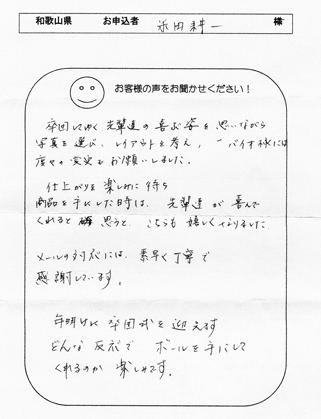 和歌山県 お申込者 永田耕一 様
お客様の声をお聞かせください！
卒団してゆく先輩達の喜ぶ姿を思いながら
写真を選び、レイアウトを考え、バイオ秋には
度々の変更をお願いしました。
仕上がりを楽しみに待ち
商品を手にした時は、先輩達が喜んで
くれると思うと、こちらも嬉しくなりました。
メールの対応には、素早く丁寧で
感謝しています。
年明けに卒団式を迎えます
どんな反応で ボールを手にして
くれるのか 楽しみです。